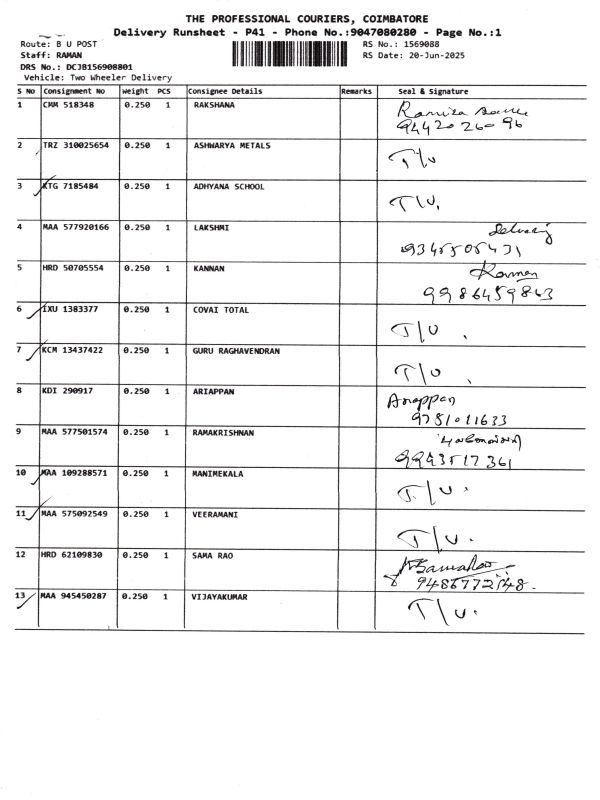 THE PROFESSIONAL COURIERS, COIMBATORE
Delivery Runsheet - P41 - Phone No.:9047080280 - Page No.:1
Route: B U POST RS No.: 1569088
Staff: RAMAN RS Date: 20-Jun-2025
DRS No.: DCJB156908801
Vehicle: Two Wheeler Delivery
S No Consignment No Weight PCS Consignee Details Remarks Seal & Signature
1 CMM 518348 0.250 1 RAKSHANA
94420 26096
2 TRZ 310025654 0.250 1 ASHWARYA METALS T/U
3 KTG 7185484 0.250 1 ADHYANA SCHOOL T/U.
4 MAA 577920166 0.250 1 LAKSHMI
9345505431
5 HRD 50705554 0.250 1 KANNAN
6 IXU 1383377 0.250 1 COVAI TOTAL T/U .
7 KCM 13437422 0.250 1 GURU RAGHAVENDRAN T/U .
8 KDI 290917 0.250 1 ARIAPPAN Ariappan
9751011633
9 MAA 577501574 0.250 1 RAMAKRISHNAN
9943517361
10 MAA 109288571 0.250 1 MANIMEKALA T/U.
11 MAA 575092549 0.250 1 VEERAMANI T/U.
12 HRD 62109830 0.250 1 SAMA RAO
13 MAA 945450287 0.250 1 VIJAYAKUMAR T/U.